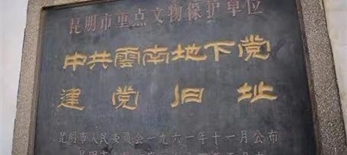 昆明市重点文物保护单位
中共雲南地下党
建党旧址
昆明市人民委员会一九六一年十一月公布